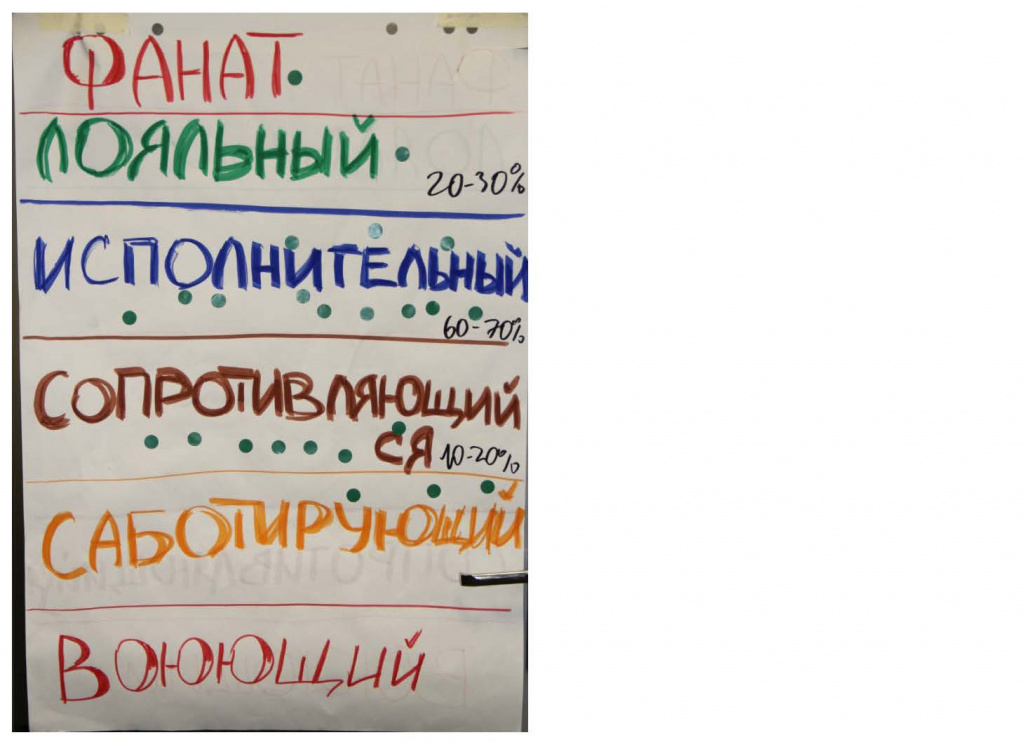 ФАНАТ
ЛОЯЛЬНЫЙ
20-30%
ИСПОЛНИТЕЛЬНЫЙ
60-70%
СОПРОТИВЛЯЮЩИЙ
СЯ 10-20%
САБОТИРУЮЩИЙ
ВОЮЮЩИЙ